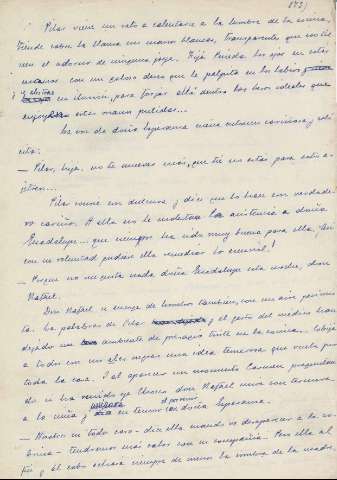 172)
Pilar viene un rato a calentarse a la lumbre de la cocina,
tiende sobre la llama sus manos blancas, transparentes que no tie
nen el adorno de ninguna joya. Fija Pineda los ojos en estas
manos con un deseo que le palpita en los labios
en ilusión, para forjar allá dentro los besos ideales que
estas manos pulidas...
La voz de doña Esperanza suena entonces cariñosa y
— Pilar, hija, no te muevas más, que tú no estás para estos a
jetreos...
Pilar sonríe con dulzura y dice que lo hace con verdade
ro cariño. A ella no le molesta la asistencia a doña
Guadalupe... que siempre ha sido muy buena para ella. ¡Si
con su voluntad pudiera ella remediar lo ocurrido!
— Porque no me gusta nada doña Guadalupe esta noche, don
Rafael.
Don Rafael se encoge de hombros también, con un aire pesimis
ta. Las palabras de Pilar y el gesto del médico han
dejado un ambiente de presagio triste en la cocina. Cobija
a todos con sus alas negras una idea temerosa que vuela por
toda la casa. Y al aparecer un momento Carmen preguntan
do si ha venido ya Chano don Rafael mira con ternura
a la niña y dice en tono a doña Esperanza.
— Nacho en todo caso - dice ella cuando ve desaparecer a la so
brina - tendremos más calor con su compañía. Pero ella al
fin y al cabo echará siempre de menos la sombra de la madre.